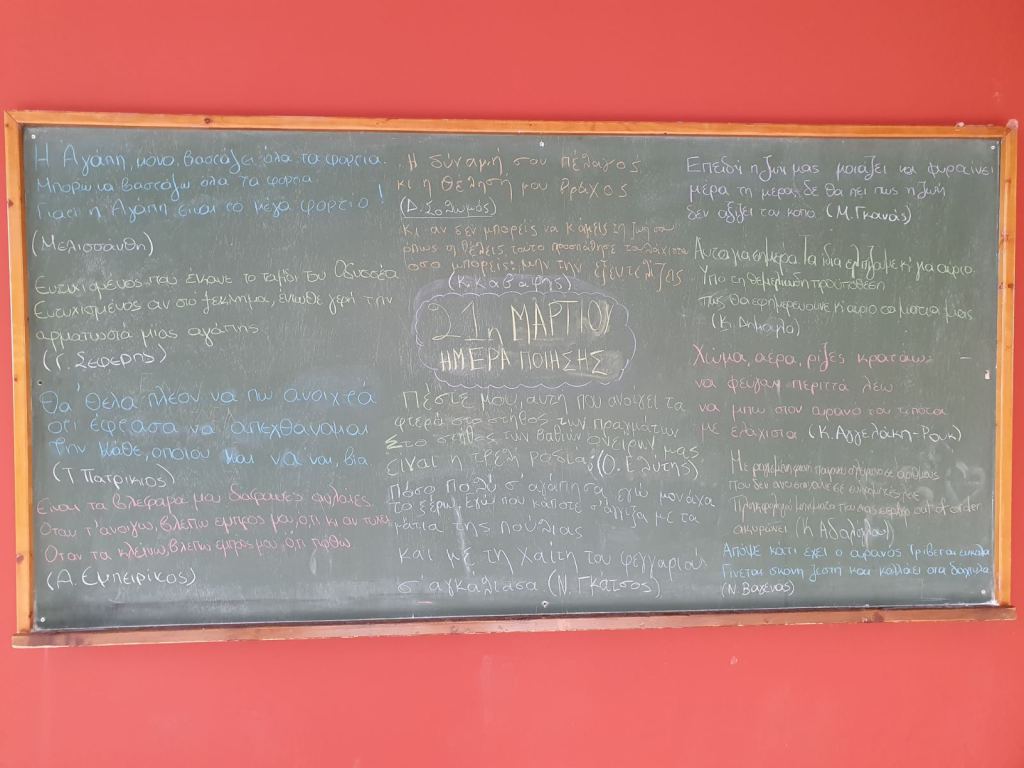 Η Αγάπη, μόνο, βαστάζει όλα τα φορτία.
Μπορώ να βαστάξω όλα τα φορτία
Γιατί η Αγάπη είναι το μέγα φορτίο!
(Μελισσάνθη)
Ευτυχισμένος που έκανε το ταξίδι του Οδυσσέα
Ευτυχισμένος αν στο ξεκίνημα, ένιωθε γερή την
αρματωσιά μιας αγάπης
(Γ. Σεφέρης)
Θα θελα πλέον να πω ανοιχτά
ότι έφτασα να απεχθάνομαι
την κάθε, οποιου και να ναι, βία
(Τ Πατρίκιος)
Είναι τα βλέφαρα μου διάφανες αυλαίες.
Όταν τ'ανοίγω, βλέπω εμπρός μου, ό,τι κι αν τύχει
Όταν τα κλείνω, βλέπω εμπρός μου, ό,τι ποθώ
(Α. Εμπειρίκος)
Η δύναμή σου πέλαγος
κι η θέλησή μου βράχος
(Δ. Σολωμός)
Κι αν δεν μπορείς να κάμεις τη ζωή σου
όπως τη θέλεις τούτο προσπάθησε τουλάχιστο
όσο μπορείς: μην την εξευτελίζεις
(Κ. Καβάφης)
21η ΜΑΡΤΙΟΥ
ΗΜΕΡΑ ΠΟΙΗΣΗΣ
Πέστε μου, αυτή που ανοίγει τα
φτερά στο στήθος των πραγμάτων
Στο στήθος των βαθιών ονείρων μας
είναι η τρελή ροδιά; (Ο. Ελύτης)
Πόσο πολύ σ' αγάπησα εγώ μονάχα
το ξέρω Εγώ που κάποτε σ'άγγιξα με τα
μάτια της πούλιας
και με τη χαίτη του φεγγαριού
σ'αγκάλιασα (Ν. Γκάτσος)
Επειδή η ζωή μας μοιάζει να φυραίνει
μέρα τη μέρα, δε θα πει πως η ζωή
δεν αξίζει τον κόπο. (Μ. Γκανάς)
Αυτά για σήμερα. Τα ίδια ελπίζουμε κι για αύριο.
Υπό τη θεμελιώδη προϋπόθεση
πως θα εφημερεύουνε κι αύριο τα μάτια μας
(Κ. Δημουλά)
Χώμα, αέρα, ρίζες κρατάω·
να φεύγουν περιττά λέω
να μπω στον ουρανό του τίποτα
με ελάχιστα (Κ. Αγγελάκη-Ρουκ)
out of order
Απόψε κάτι έχει ο ουρανός τρίβεται εύκολα
Γίνεται σκόνη ζεστή και κολλάει στα δάχτυλα
(Ν. Βαγενάς)